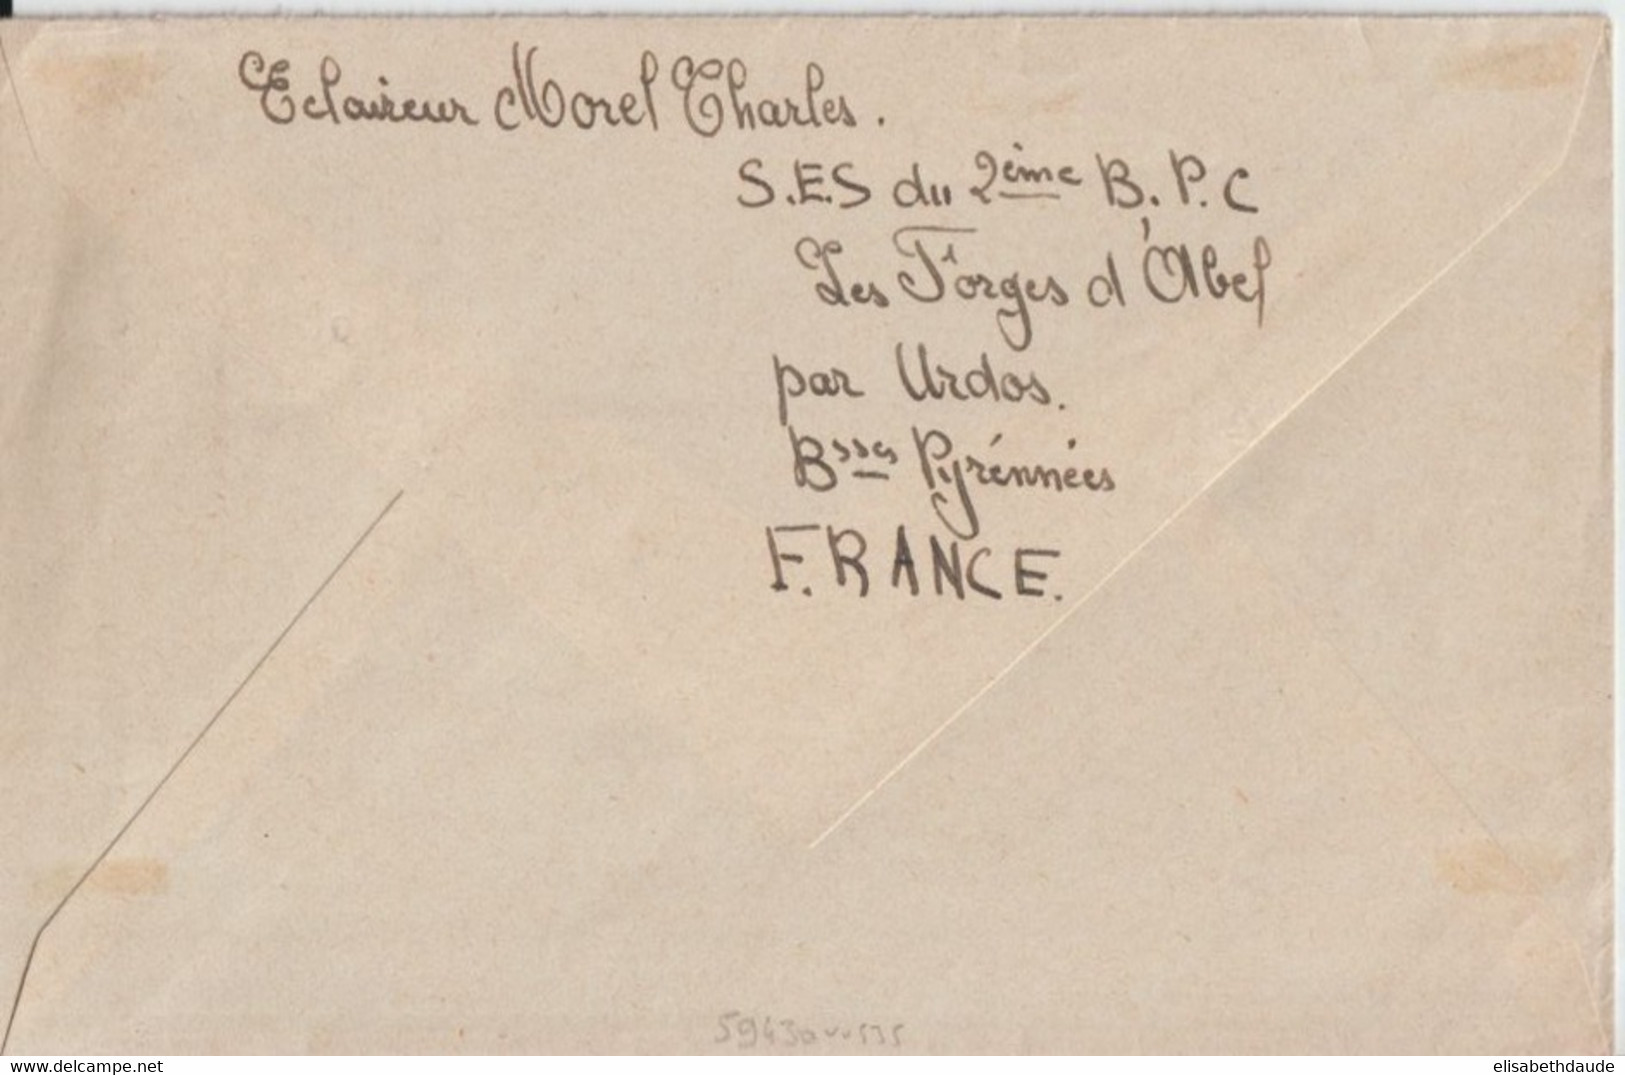 Eclaireur Morel Charles.
S.E.S du 2ème B.P.C
Les Forges d'Abel
par Urdos.
Bsses Pyrénnées
FRANCE.
delcampe.net
elisabethdaude